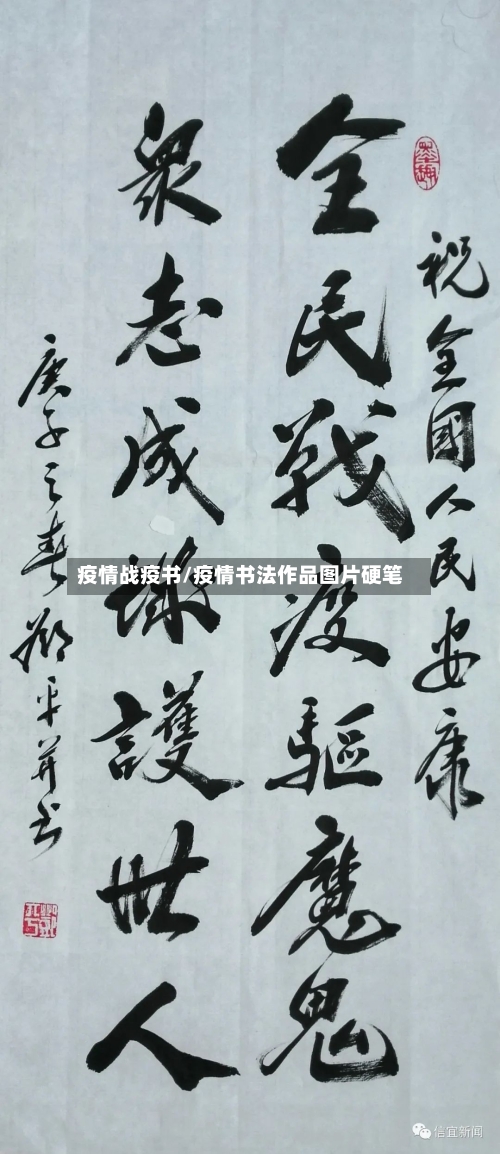 祝全國人民安康
全民戰疫驅魔鬼
衆志成城護世人
庚子之春鄧平并书
疫情战疫书/疫情书法作品图片硬笔
信宜新闻